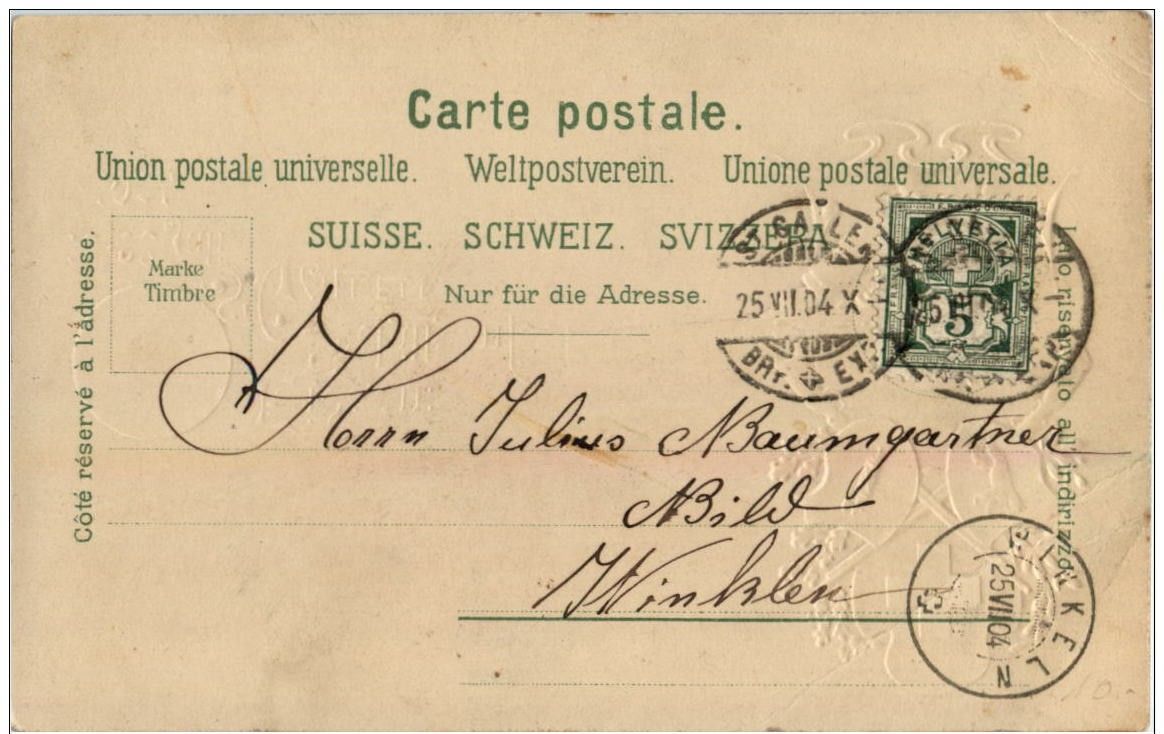 Carte postale.
Union postale universelle. Weltpostverein. Unione postale universale.
SUISSE. SCHWEIZ. SVIZZERA
Marke
Timbre
Nur für die Adresse.
Côté réservé à l'adresse.
Lato riservato all' indirizzo
ST. GALLEN
25 VII.04 X
BRF. EXP.
HELVETIA
5
Herrn Julius Baumgartner
Bild
Winkeln
WINKELN
25 VII 04
10.-